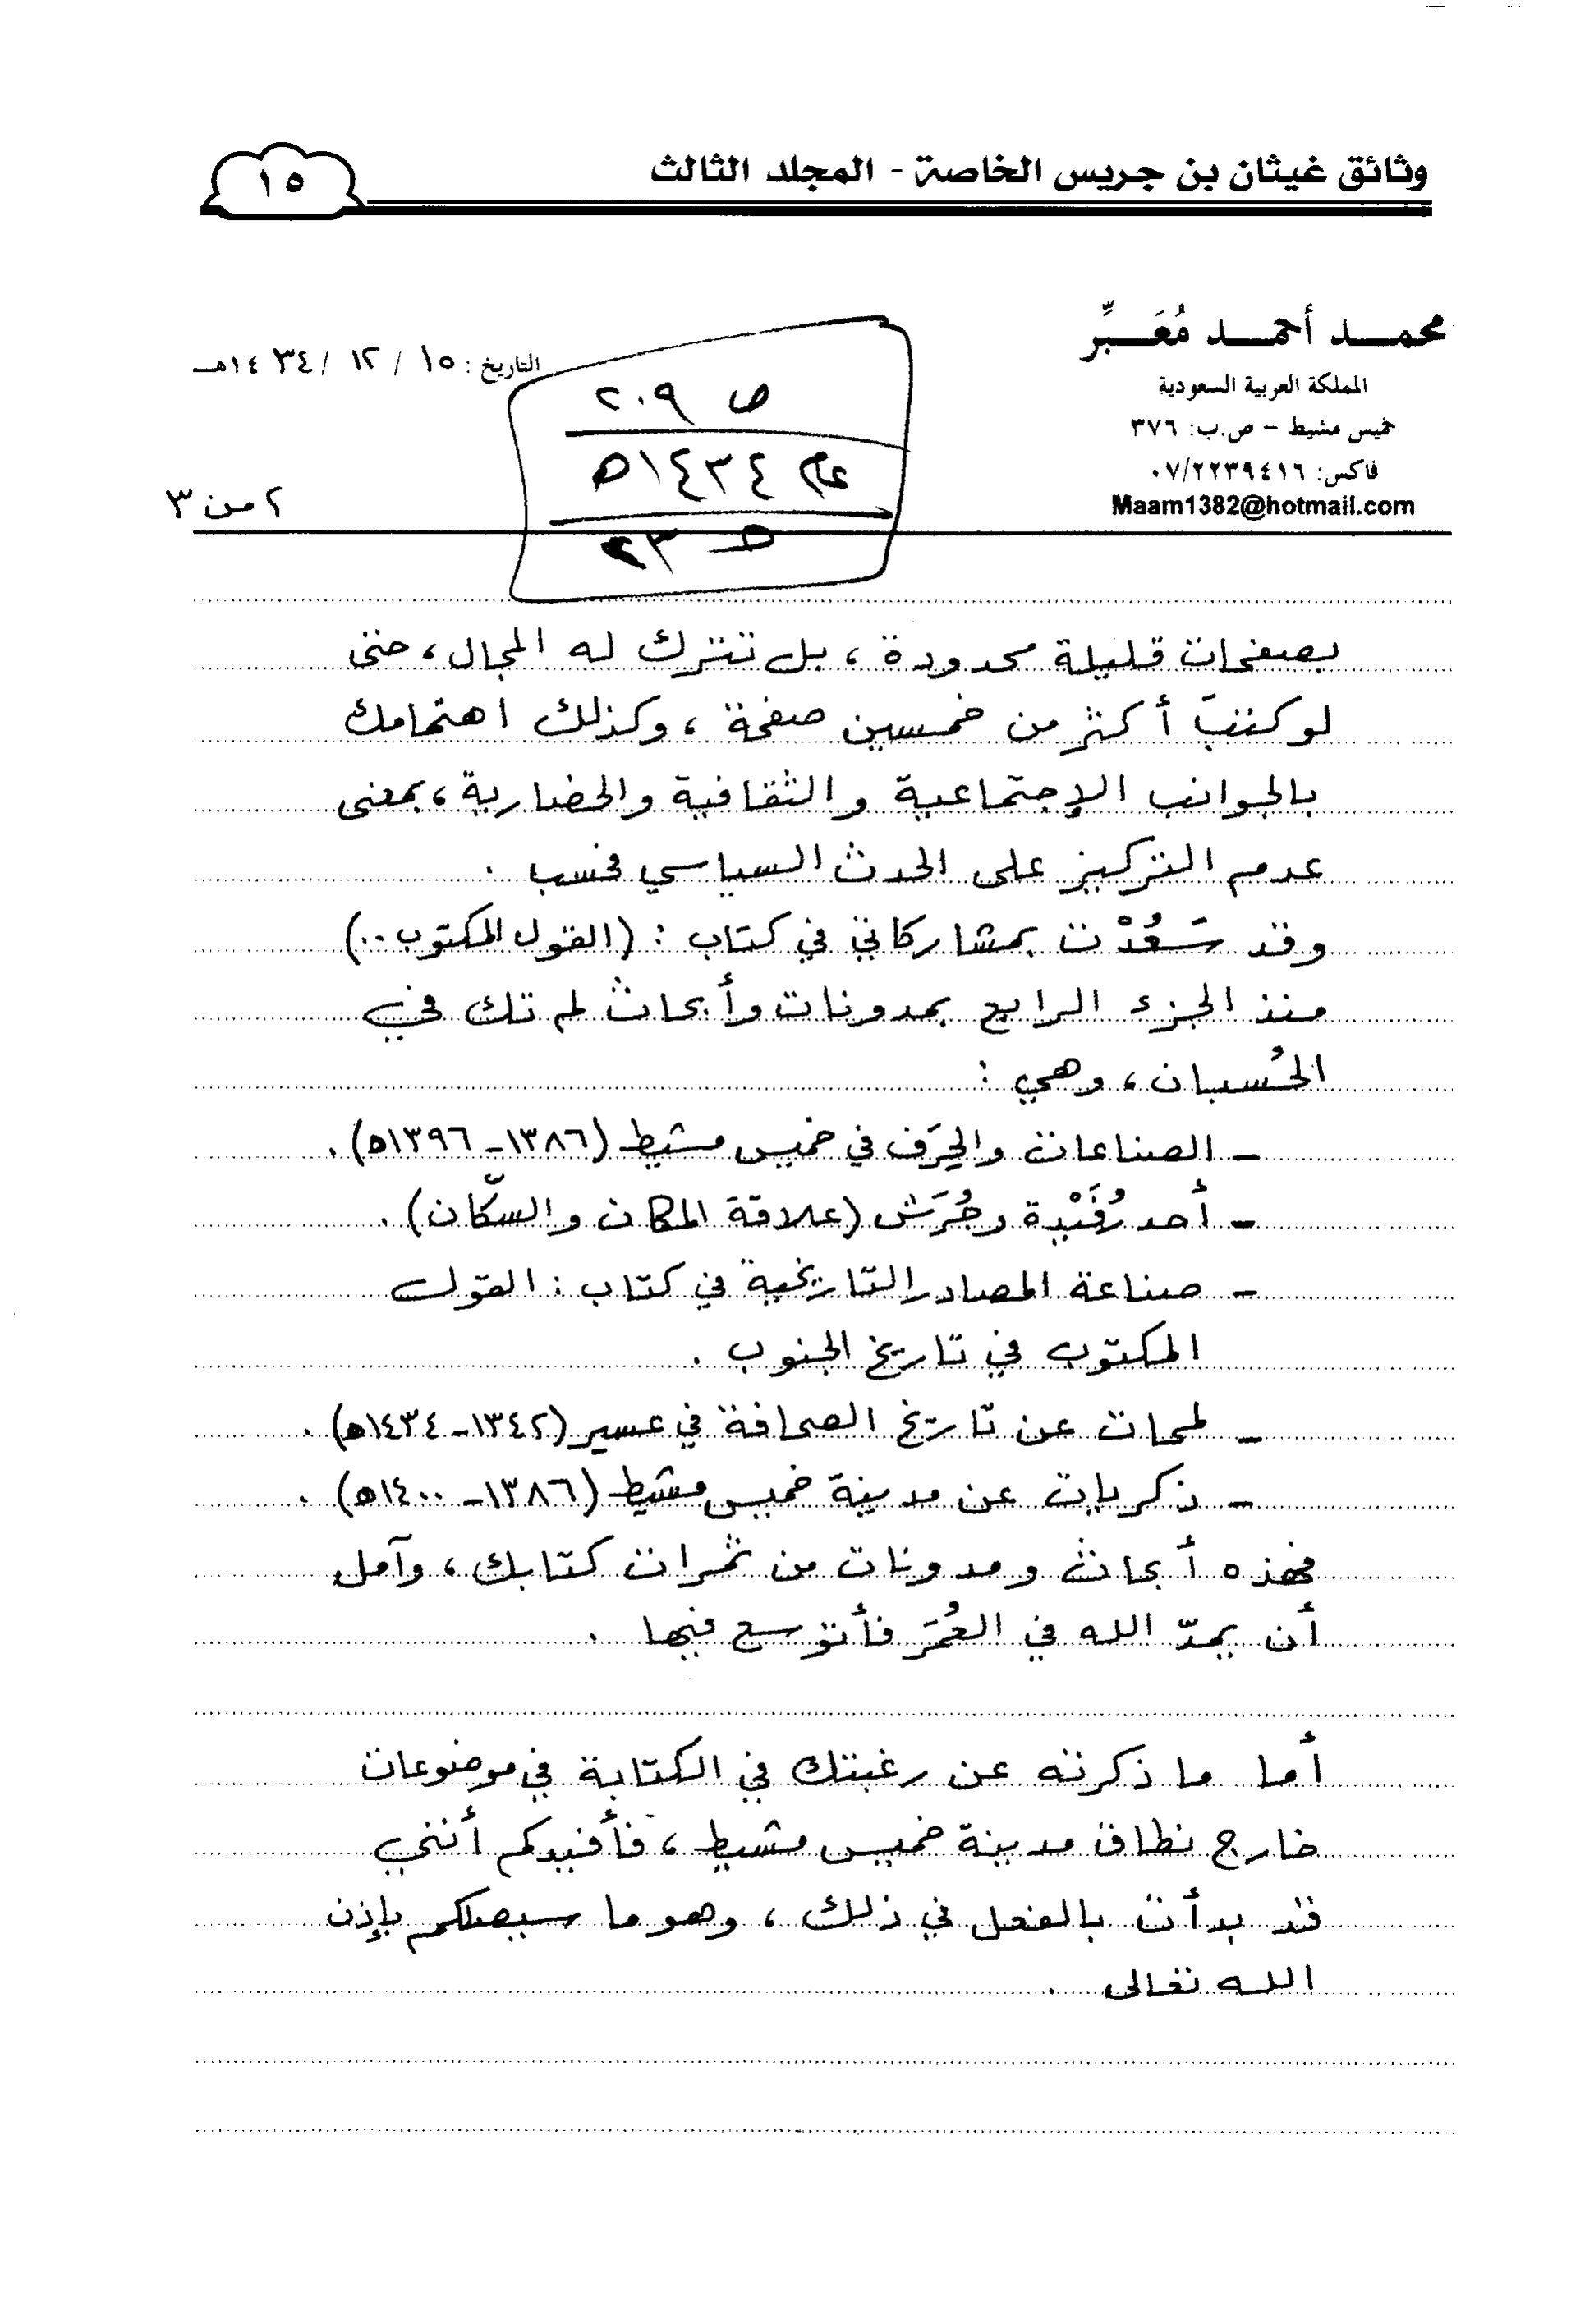 وثائق غيثان بن جريس الخاصة - المجلد الثالث
١٥
محمد أحمد مُعَبِّر
المملكة العربية السعودية
خميس مشيط – ص.ب: ٣٧٦
فاكس: ٠٧/٢٢٣٩٤١٦
Maam1382@hotmail.com
التاريخ: ١٥ / ١٢ / ١٤٣٤هـ
ص ٢٠٩
عام ١٤٣٤ه
ط ٢٣
٢ من ٣
بصفحات قليلة محدودة، بل تترك له المجال، حتى
لو كتبَ أكثر من خمسين صفحة، وكذلك اهتمامك
بالجوانب الإجتماعية والثقافية والحضارية، بمعنى
عدم التركيز على الحدث السياسي فحسب .
وقد سَعُدْت بمشاركاتي في كتاب : (القول المكتوب ..)
منذ الجزء الرابع بمدونات وأبحاث لم تك في
الحُسبان، وهي :
- الصناعات والحِرَف في خميس مشيط (١٣٨٦-١٣٩٦ه) .
- أحد رُفَيْدة وجُرَش (علاقة المكان والسكّان) .
- صناعة المصادر التاريخية في كتاب : القول
المكتوب في تاريخ الجنوب .
- لمحات عن تاريخ الصحافة في عسير (١٣٤٢-١٤٣٤ه) .
- ذكريات عن مدينة خميس مشيط (١٣٨٦-١٤٠٠ه) .
فهذه أبحاث ومدونات من ثمرات كتابك، وآمل
أن يمدّ الله في العُمَر فأتوسع فيها .
أما ما ذكرته عن رغبتك في الكتابة في موضوعات
خارج نطاق مدينة خميس مشيط، فأفيدكم أنني
قد بدأت بالفعل في ذلك، وهو ما سيصلكم بإذن
الله تعالى .